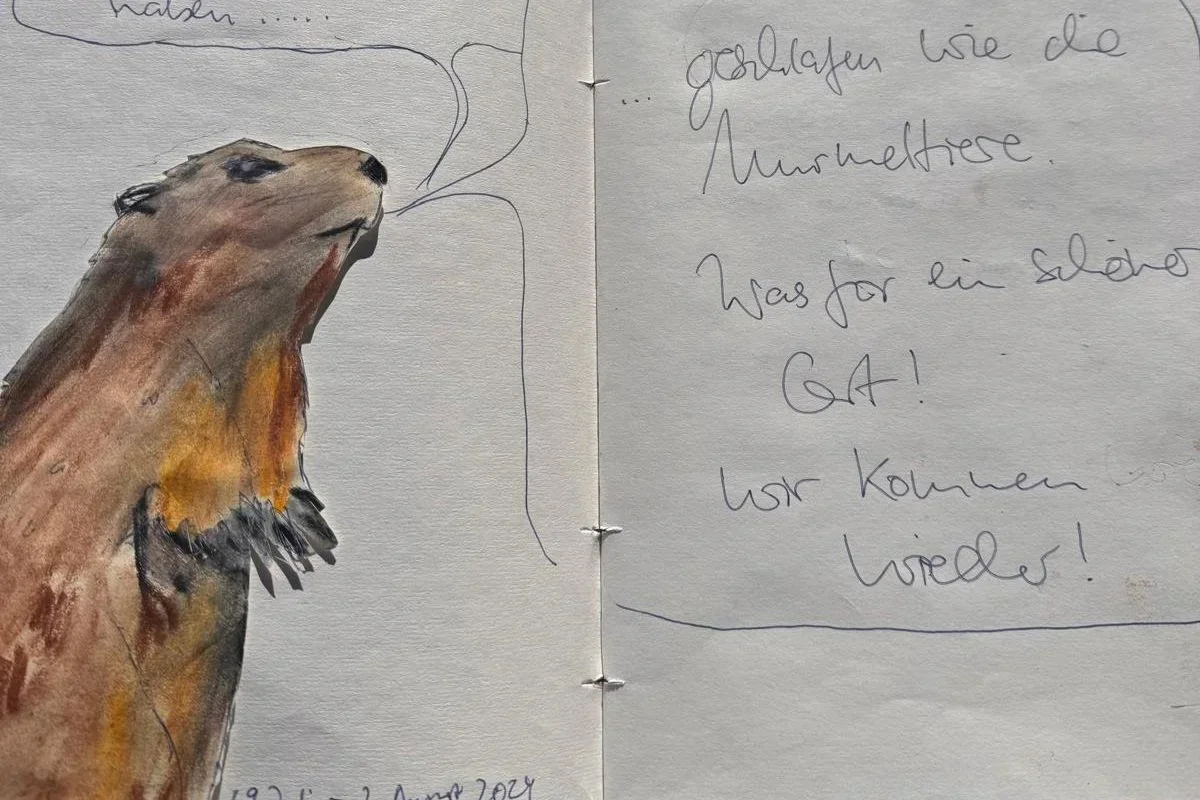 haben .....
... geschlafen wie die
Murmeltiere.
Was für ein schöner
Ort!
Wir kommen
wieder!
August 2024